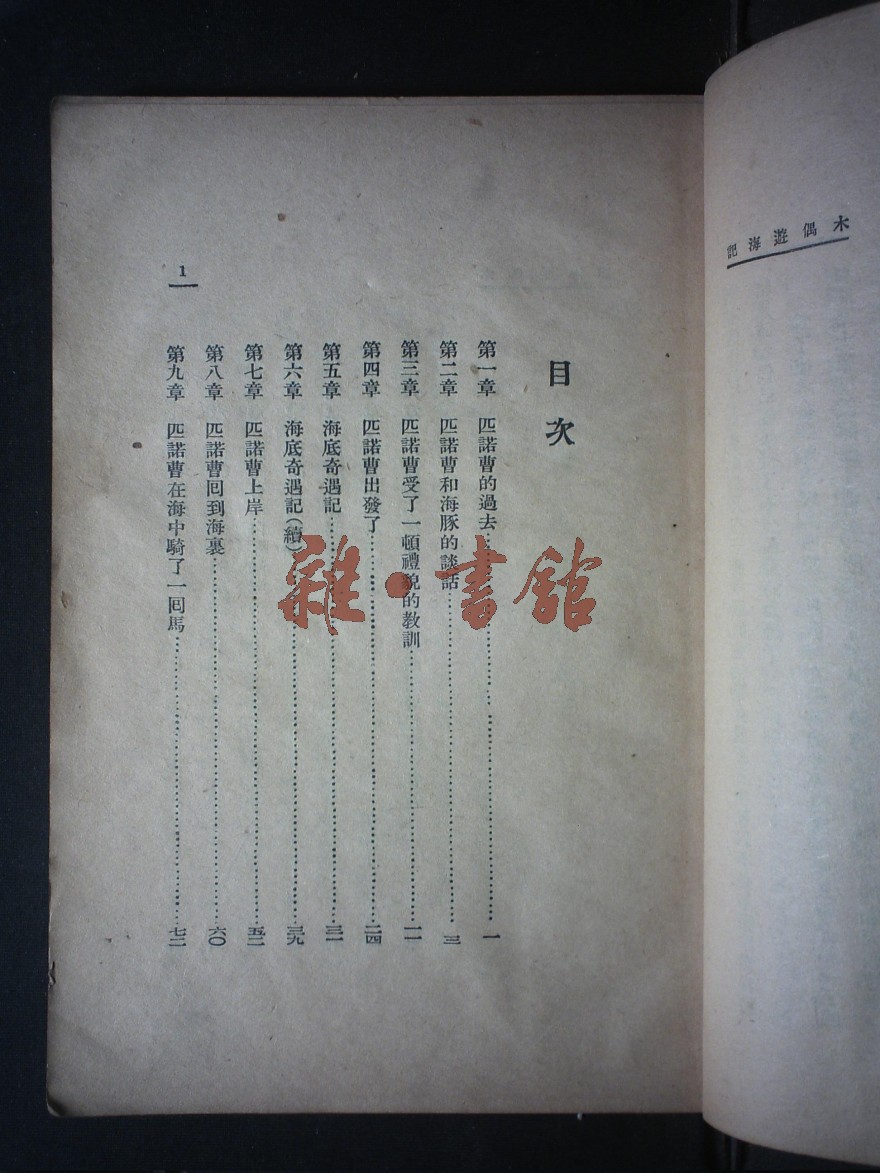 木偶遊海記
目次
第一章 匹諾曹的過去 一
第二章 匹諾曹和海豚的談話 三
第三章 匹諾曹受了一頓禮貌的教訓 一一
第四章 匹諾曹出發了 二四
第五章 海底奇遇記 三一
第六章 海底奇遇記(續) 三九
第七章 匹諾曹上岸 五二
第八章 匹諾曹回到海裏 六〇
第九章 匹諾曹在海中騎了一回馬 七二
1
雜·書館